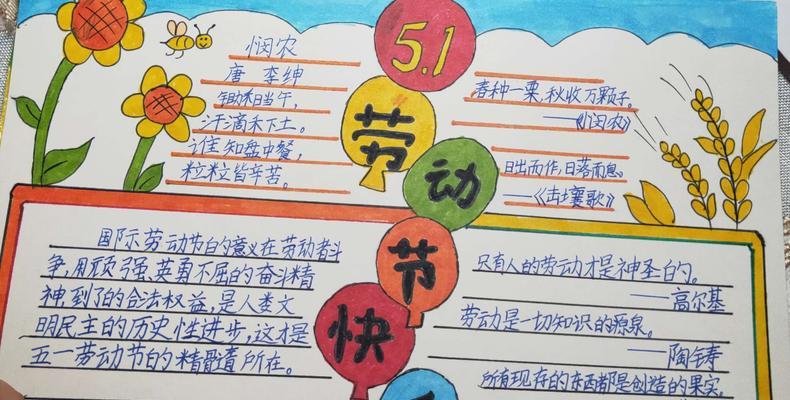 5.1
劳
动
节
快
悯农
唐 李绅
锄禾日当午,
汗滴禾下土。
谁知盘中餐,
粒粒皆辛苦。
春种一粟,秋收万颗子。
——《悯农》
日出而作,日落而息。
——《击壤歌》
国际劳动节的意义在劳动者斗
争,用顽强、英勇不屈的奋斗精
神到了的合法权益,是人类文
明民主的历史性进步,这才是
五一劳动节的精髓所在。
只有人的劳动才是神圣的。
——高尔基
劳动是一切知识的源泉。
——陶铸
所有现存的东西都是创造的果实。